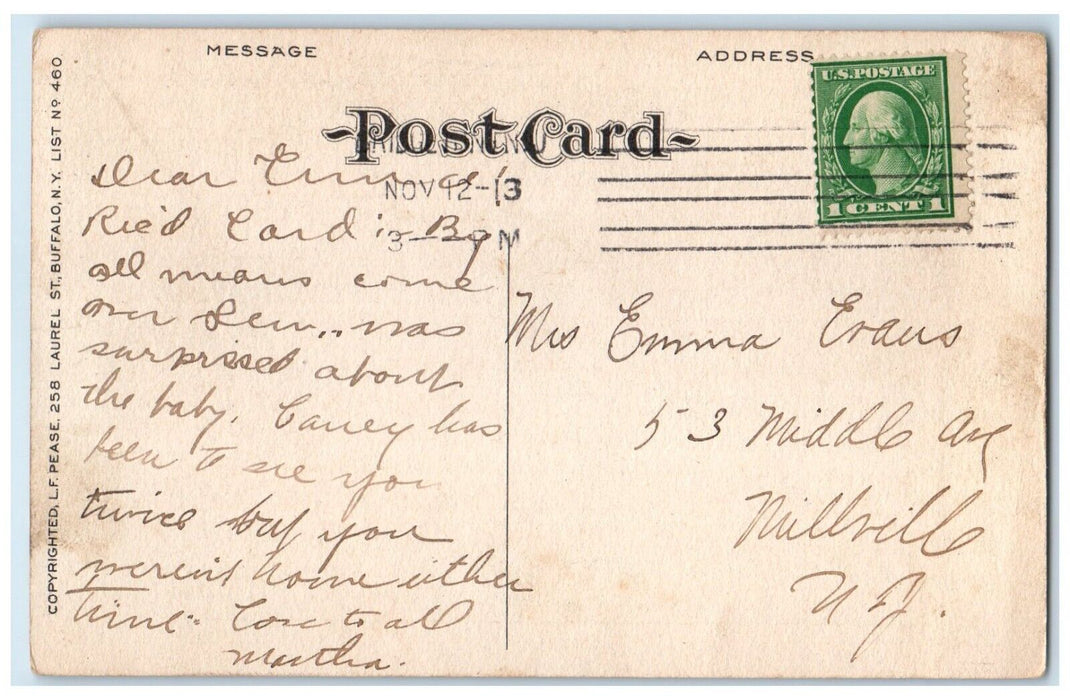 MESSAGE
ADDRESS
U.S. POSTAGE
1 CENT 1
Post Card
NOV 12-13
3 - PM
COPYRIGHTED, L.F. PEASE, 258 LAUREL ST., BUFFALO, N.Y. LIST Nº 460
Dear Emma
Rec'd Card. By
all means come
over Sun.. was
surprised about
the baby. Carrey has
been to see you
twice but you
weren't home either
time. Love to all
Martha.
Mrs Emma Evans
53 Middle Ave
Millville
N J.